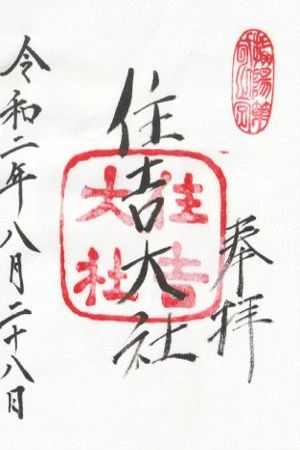 奉拝
住吉大社
住吉
大社
令和二年八月二十八日